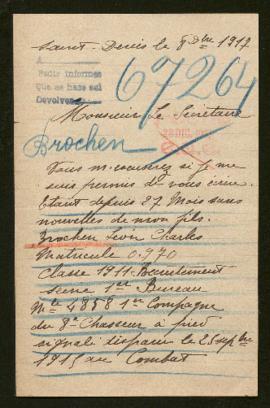 Saint-Denis le 8 Dbre 1917
A
Pedir informes
que se hace sel
Devolver
67264
Monsieur Le Secretaire
Brochen
Vous m'excuserez si je me
suis permis de vous écrire
Etant depuis 27 Mois sans
nouvelles de mon fils.
Brochen Léon Charles
Matricule 0.970
Classe 1911-Recrutement
Seine 1er Bureau
Mle 4858 1ere Compagnie
du 8e Chasseur à pied
signalé disparu le 25 septbre
1915 au Combat